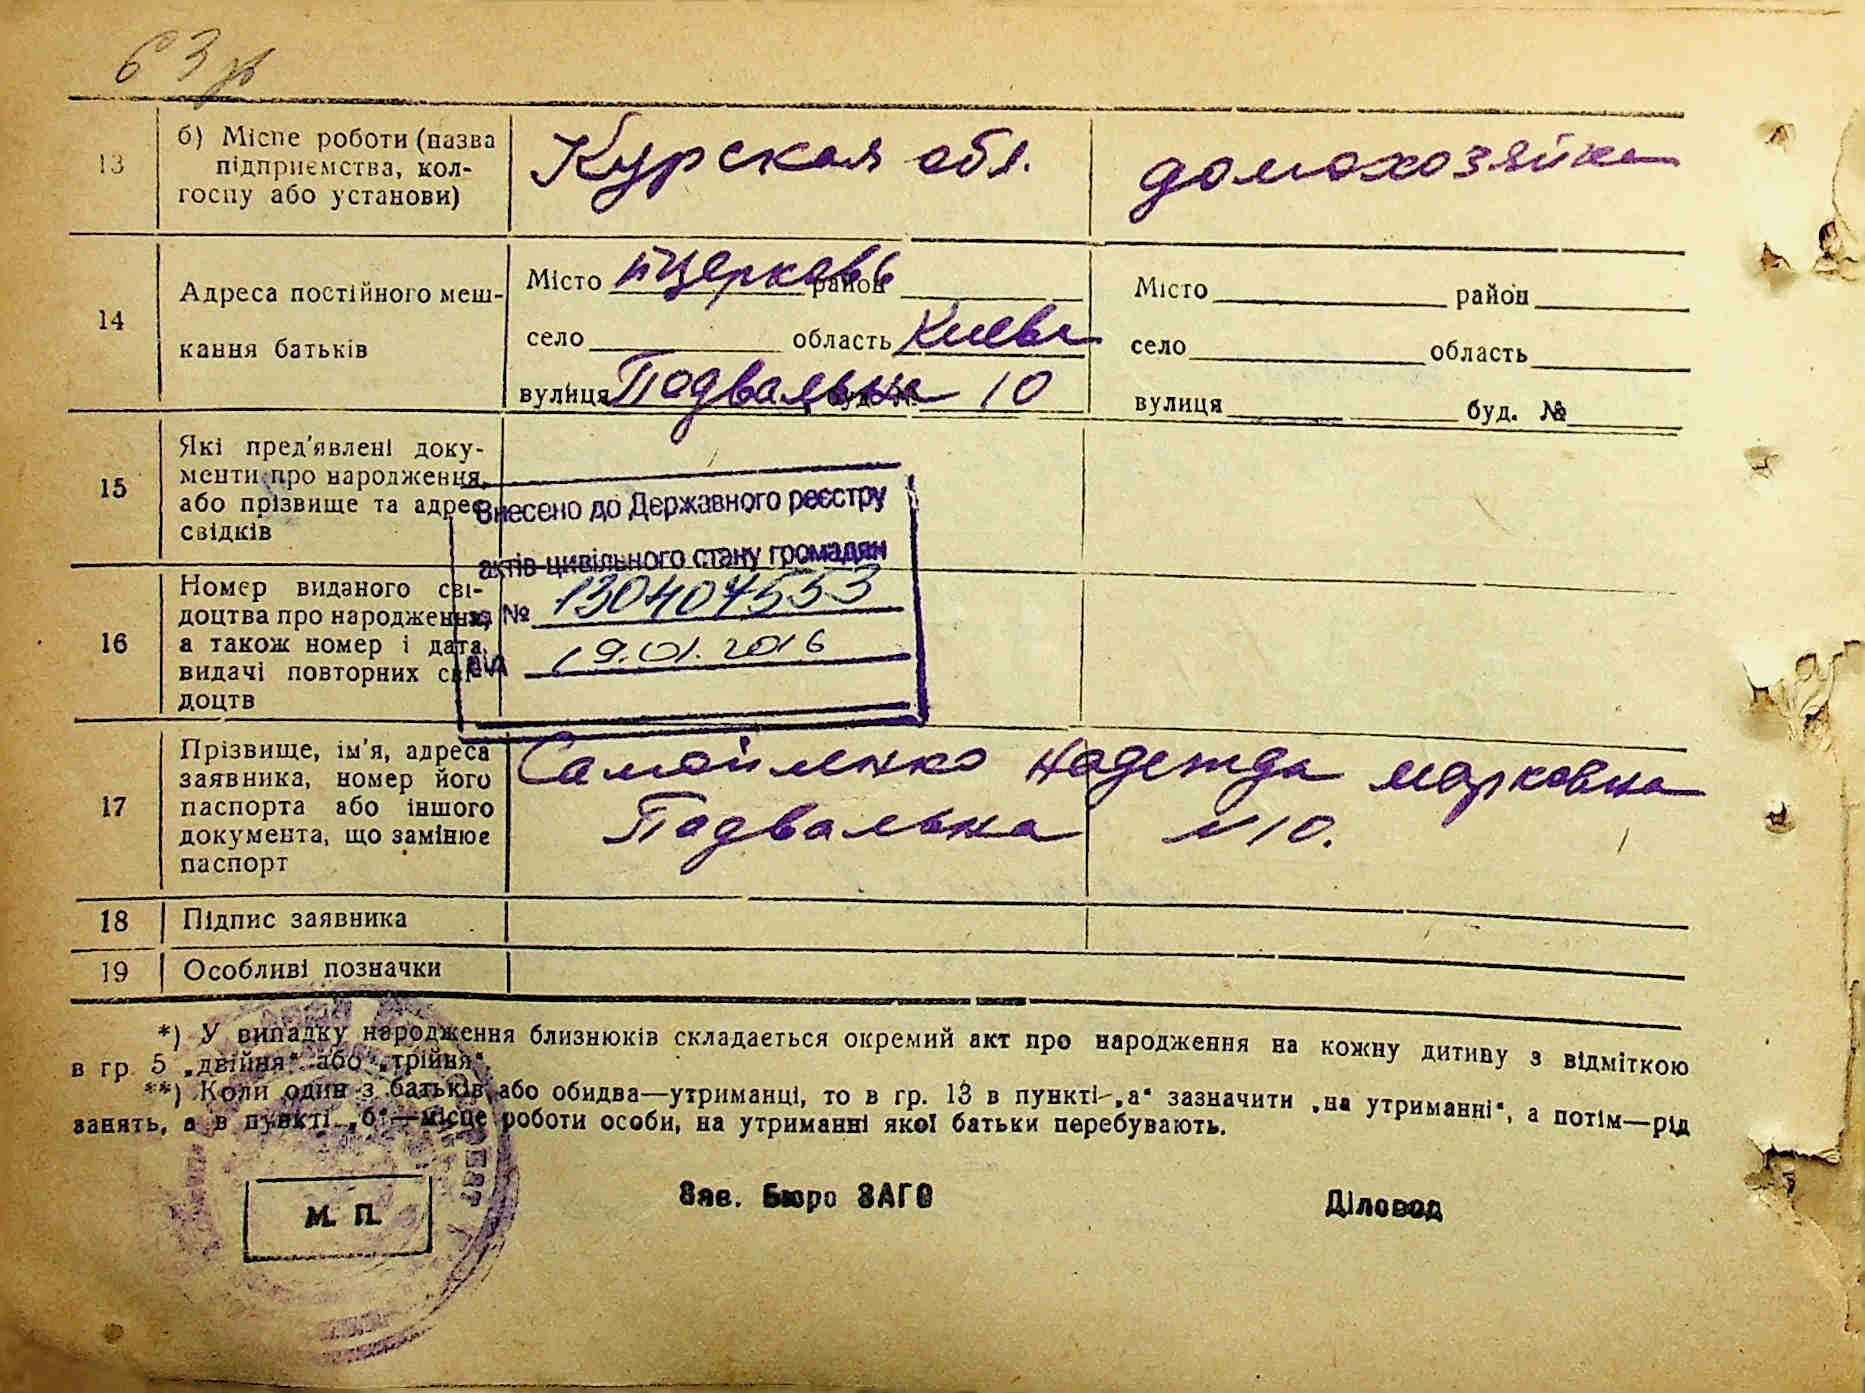 63 зв
13
б) Місце роботи (назва
підприємства, кол-
госпу або установи)
Курская обл.
домохозяйка
14
Адреса постійного меш-
кання батьків
Місто Бцерковь район
село область Киевск
вулиця Подвальна буд. № 10
Місто район
село область
вулиця буд. №
15
Які пред'явлені доку-
менти про народження,
або прізвище та адрес
свідків
Внесено до Державного реєстру
актів цивільного стану громадян
за № 130407553
від 19.01.2016
16
Номер виданого сві-
доцтва про народження,
а також номер і дата
видачі повторних сві-
доцтв
17
Прізвище, ім'я, адреса
заявника, номер його
паспорта або іншого
документа, що замінює
паспорт
Самойленко Надежда Марковна
Подвальна №10.
18
Підпис заявника
19
Особливі позначки
*) У випадку народження близнюків складається окремий акт про народження на кожну дитину з відміткою
в гр. 5 „двійня“ або „трійня“.
**) Коли один з батьків або обидва—утриманці, то в гр. 13 в пункті „а“ зазначити „на утриманні“, а потім—рід
занять, а в пункті „б“—місце роботи особи, на утриманні якої батьки перебувають.
М. П.
Зав. Бюро ЗАГС
Діловод